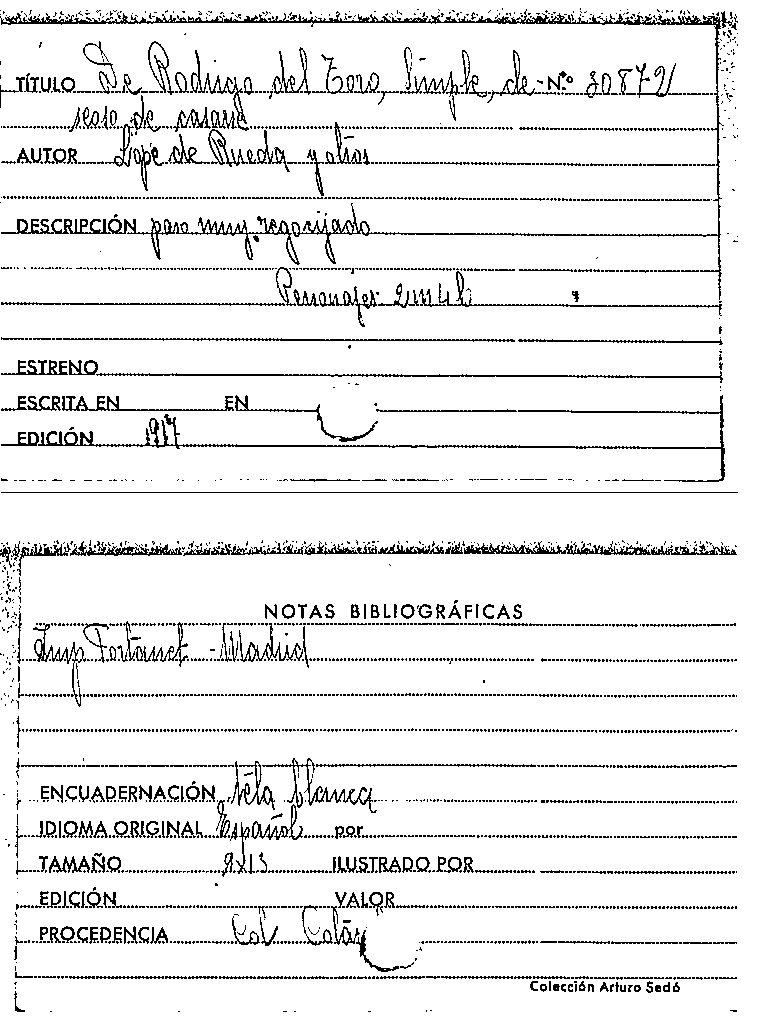 TÍTULO De Rodrigo del Toro, Simple, de- N.º 30872
seoso de casarse
AUTOR Lope de Rueda y otros
DESCRIPCIÓN paso muy regocijado
Personajes 2m4h
ESTRENO
ESCRITA EN EN
EDICIÓN 1917
NOTAS BIBLIOGRÁFICAS
Imp Fortanet - Madrid
ENCUADERNACIÓN tela blanca
IDIOMA ORIGINAL Español por
TAMAÑO 9x13 ILUSTRADO POR
EDICIÓN VALOR
PROCEDENCIA Col
Colección Arturo Sedó